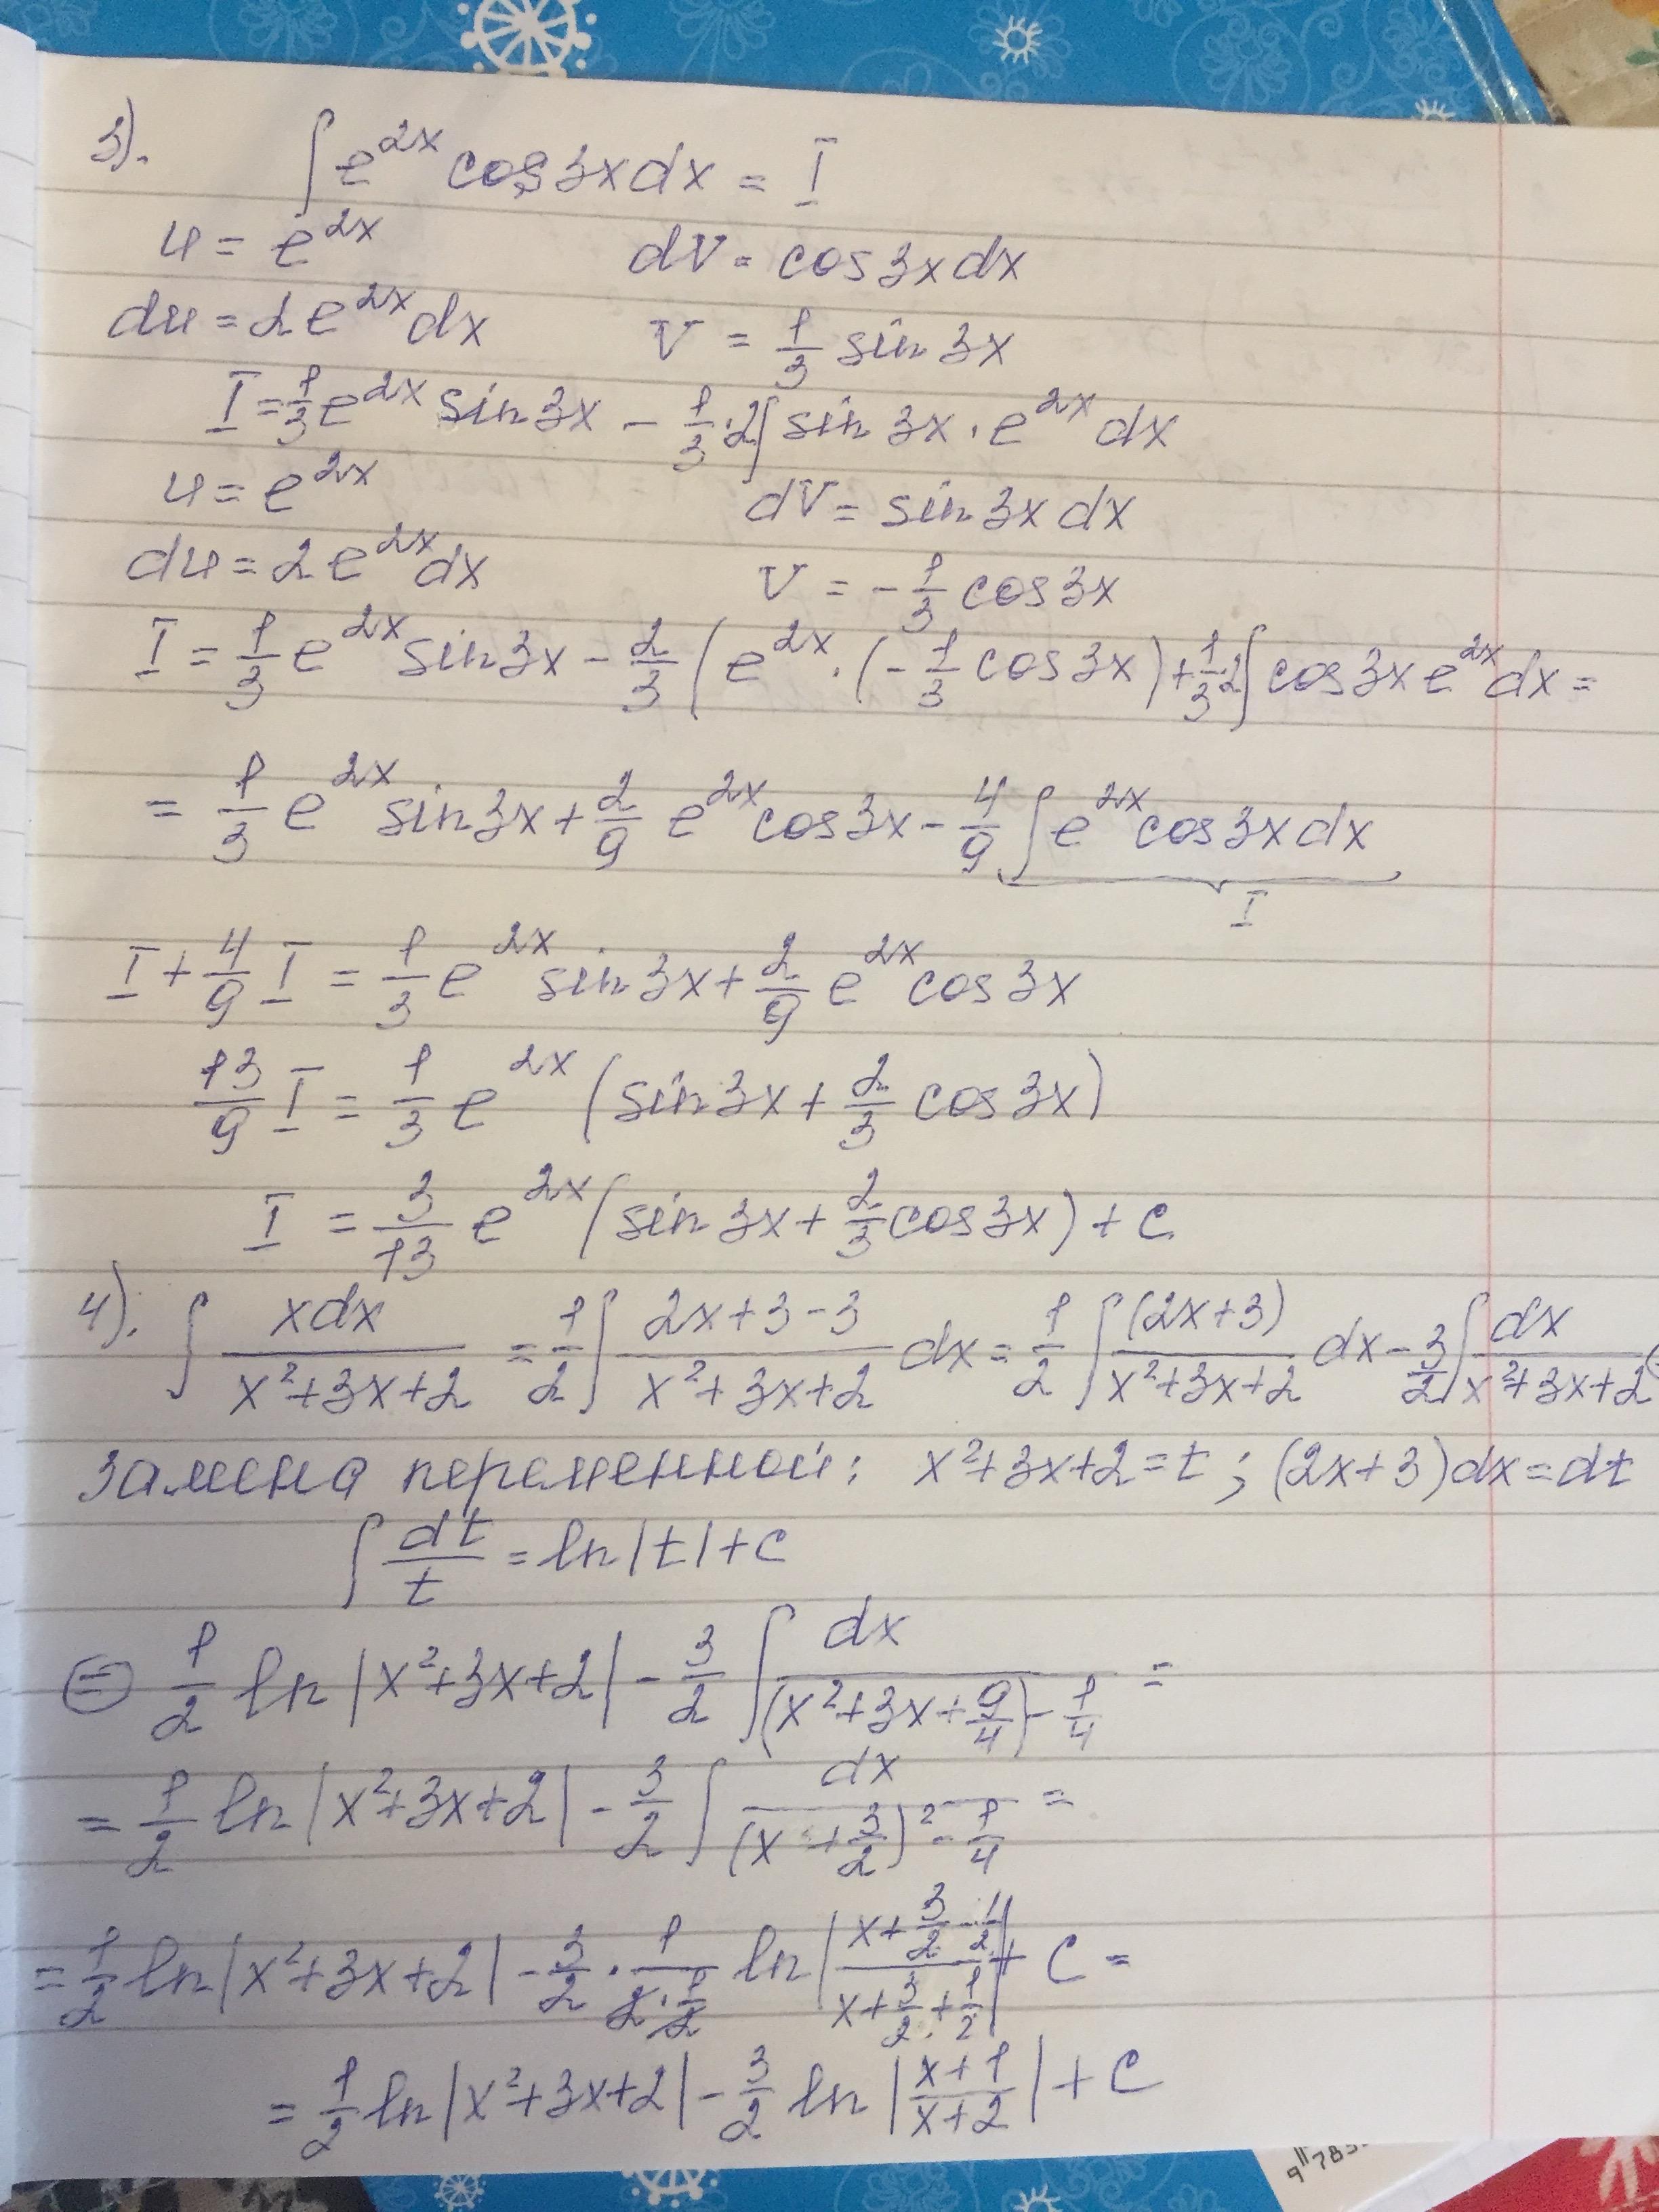 3). ∫ e^{2x} cos 3x dx = I
u = e^{2x} dV = cos 3x dx
du = 2e^{2x} dx V = \frac{1}{3} sin 3x
I = \frac{1}{3} e^{2x} sin 3x - \frac{1}{3} · 2 ∫ sin 3x · e^{2x} dx
u = e^{2x} dV = sin 3x dx
du = 2e^{2x} dx V = -\frac{1}{3} cos 3x
I = \frac{1}{3} e^{2x} sin 3x - \frac{2}{3} ( e^{2x} · (-\frac{1}{3} cos 3x) + \frac{1}{3} · 2 ∫ cos 3x e^{2x} dx =
= \frac{1}{3} e^{2x} sin 3x + \frac{2}{9} e^{2x} cos 3x - \frac{4}{9} ∫ e^{2x} cos 3x dx
I
I + \frac{4}{9} I = \frac{1}{3} e^{2x} sin 3x + \frac{2}{9} e^{2x} cos 3x
\frac{13}{9} I = \frac{1}{3} e^{2x} (sin 3x + \frac{2}{3} cos 3x)
I = \frac{3}{13} e^{2x} (sin 3x + \frac{2}{3} cos 3x) + C
4). ∫ \frac{x dx}{x^2+3x+2} = \frac{1}{2} ∫ \frac{2x+3-3}{x^2+3x+2} dx = \frac{1}{2} ∫ \frac{(2x+3)}{x^2+3x+2} dx - \frac{3}{2} ∫ \frac{dx}{x^2+3x+2}
замена переменной: x^2+3x+2 = t ; (2x+3)dx = dt
∫ \frac{dt}{t} = ln|t| + C
⊜ \frac{1}{2} ln|x^2+3x+2| - \frac{3}{2} ∫ \frac{dx}{(x^2+3x+\frac{9}{4}) - \frac{1}{4}} =
= \frac{1}{2} ln|x^2+3x+2| - \frac{3}{2} ∫ \frac{dx}{(x+\frac{3}{2})^2 - \frac{1}{4}} =
= \frac{1}{2} ln|x^2+3x+2| - \frac{3}{2} · \frac{1}{2·\frac{1}{2}} ln|\frac{x+\frac{3}{2}-\frac{1}{2}}{x+\frac{3}{2}+\frac{1}{2}}| + C =
= \frac{1}{2} ln|x^2+3x+2| - \frac{3}{2} ln|\frac{x+1}{x+2}| + C